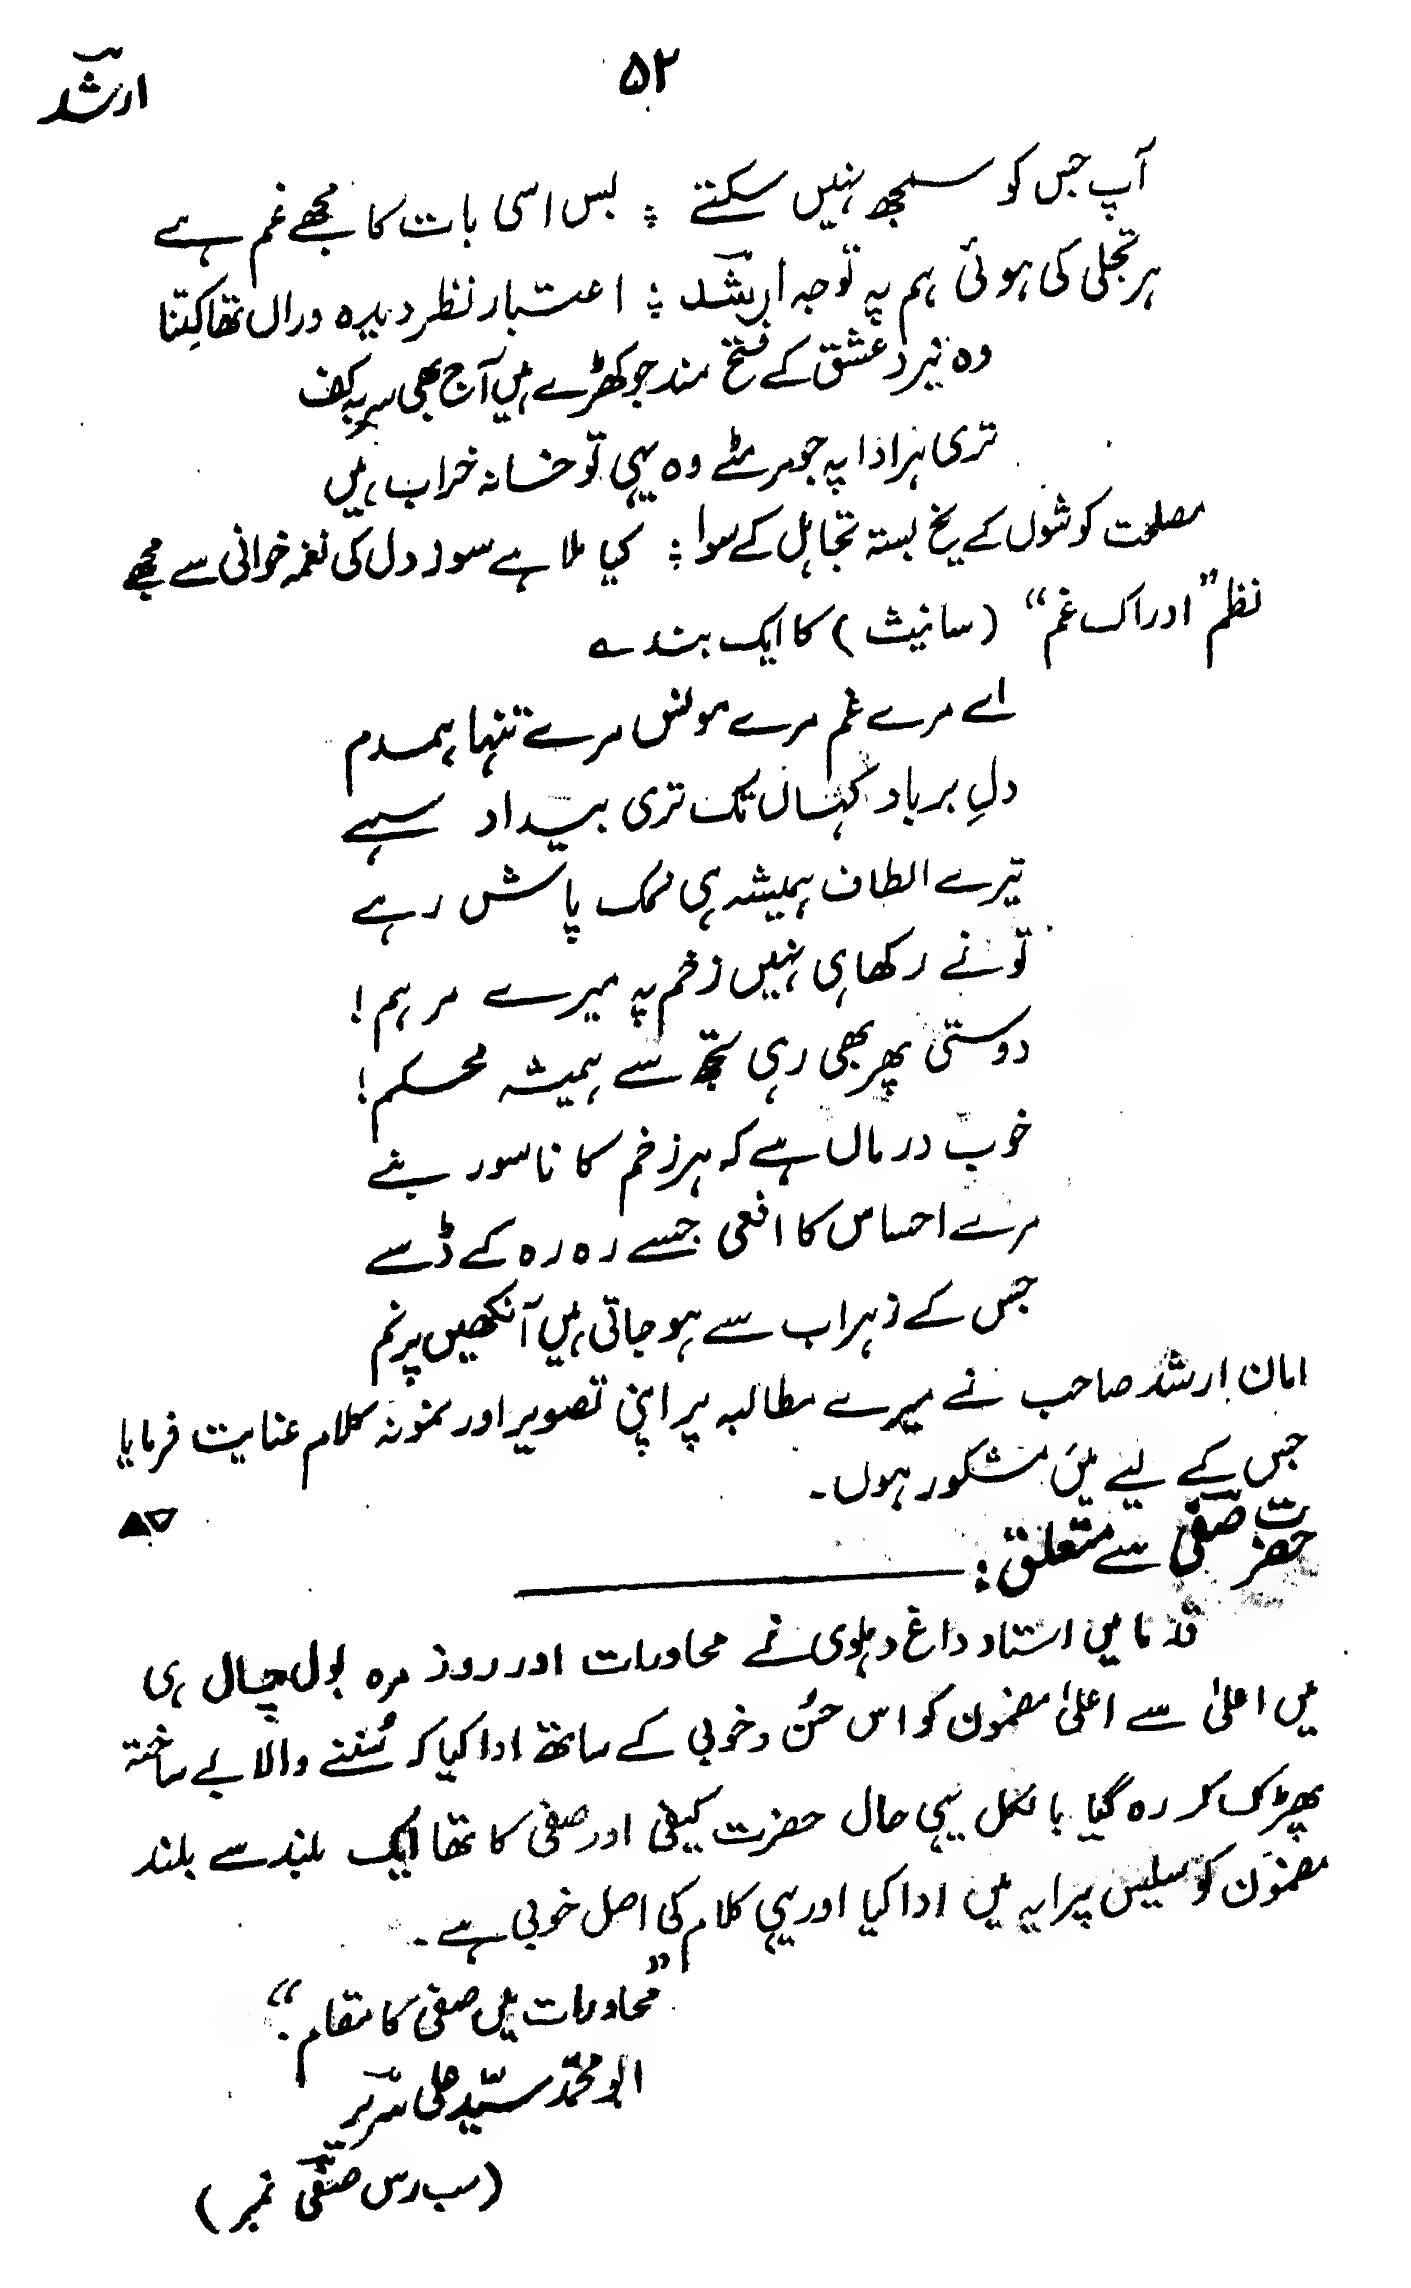 ۵۲
ارشد
آپ جس کو سمجھ نہیں سکتے ؛ بس اسی بات کا مجھے غم ہے
ہر تجلی کی ہوئی ہم پہ توجہ ارشد ؛ اعتبار نظر دیدہ وراں تھا کِتنا
وہ نبرد عشق کے فتح مند جو کھڑے ہیں آج بھی سر بہ کف
تری ہر ادا پہ جو مر مٹے وہ یہی تو خانہ خراب ہیں
مصلحت کوشوں کے یخ بستہ تجاہل کے سوا ؛ کیا ملا ہے سوز دل کی نغمہ خوانی سے مجھے
نظم ”ادراک غم“ (سانیٹ) کا ایک بند ؎
اے مرے غم مرے مونس مرے تنہا ہمدم
دلِ برباد کہاں تک تری بیداد سہے
تیرے الطاف ہمیشہ ہی نمک پاش رہے
تو نے رکھا ہی نہیں زخم پہ میرے مرہم!
دوستی پھر بھی رہی تجھ سے ہمیشہ محکم!
خوب درماں ہے کہ ہر زخم کا ناسور بنے
مرے احساس کا افعی جسے رہ رہ کے ڈسے
جس کے زہراب سے ہو جاتی ہیں آنکھیں پرنم
امان ارشد صاحب نے میرے مطالبہ پر اپنی تصویر اور نمونہ کلام عنایت فرمایا
جس کے لیے میں مشکور ہوں۔
حضرت صفی سے متعلق:
قدما میں استاد داغ دہلوی نے محاورات اور روز مرہ بول چال ہی
میں اعلیٰ سے اعلیٰ مضمون کو اس حسُن و خوبی کے ساتھ ادا کیا کہ سُننے والا بے ساختہ
پھڑک کر رہ گیا بالکل یہی حال حضرت کیفی اور صفی کا تھا ایک بلند سے بلند
مضمون کو سلیس پیرایہ میں ادا کیا اور یہی کلام کی اصل خوبی ہے۔
”محاورات میں صفی کا مقام“
ابو محمّد سیّد علی سریر
(سب رس صفی نمبر)